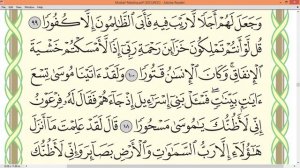 Mushaf Madina.pdf (SECURED) - Adobe Reader
وَجَعَلَ لَهُمْ أَجَلًا لَّا رَيْبَ فِيهِ فَأَبَى ٱلظَّٰلِمُونَ إِلَّا كُفُورًا ٩٩
قُل لَّوْ أَنتُمْ تَمْلِكُونَ خَزَآئِنَ رَحْمَةِ رَبِّىٓ إِذًا لَّأَمْسَكْتُمْ خَشْيَةَ
ٱلْإِنفَاقِ وَكَانَ ٱلْإِنسَٰنُ قَتُورًا ١٠٠ وَلَقَدْ ءَاتَيْنَا مُوسَىٰ تِسْعَ
ءَايَٰتٍۭ بَيِّنَٰتٍ فَسْـَٔلْ بَنِىٓ إِسْرَٰٓءِيلَ إِذْ جَآءَهُمْ فَقَالَ لَهُۥ فِرْعَوْنُ
إِنِّى لَأَظُنُّكَ يَٰمُوسَىٰ مَسْحُورًا ١٠١ قَالَ لَقَدْ عَلِمْتَ مَآ أَنزَلَ
هَٰٓؤُلَآءِ إِلَّا رَبُّ ٱلسَّمَٰوَٰتِ وَٱلْأَرْضِ بَصَآئِرَ وَإِنِّى